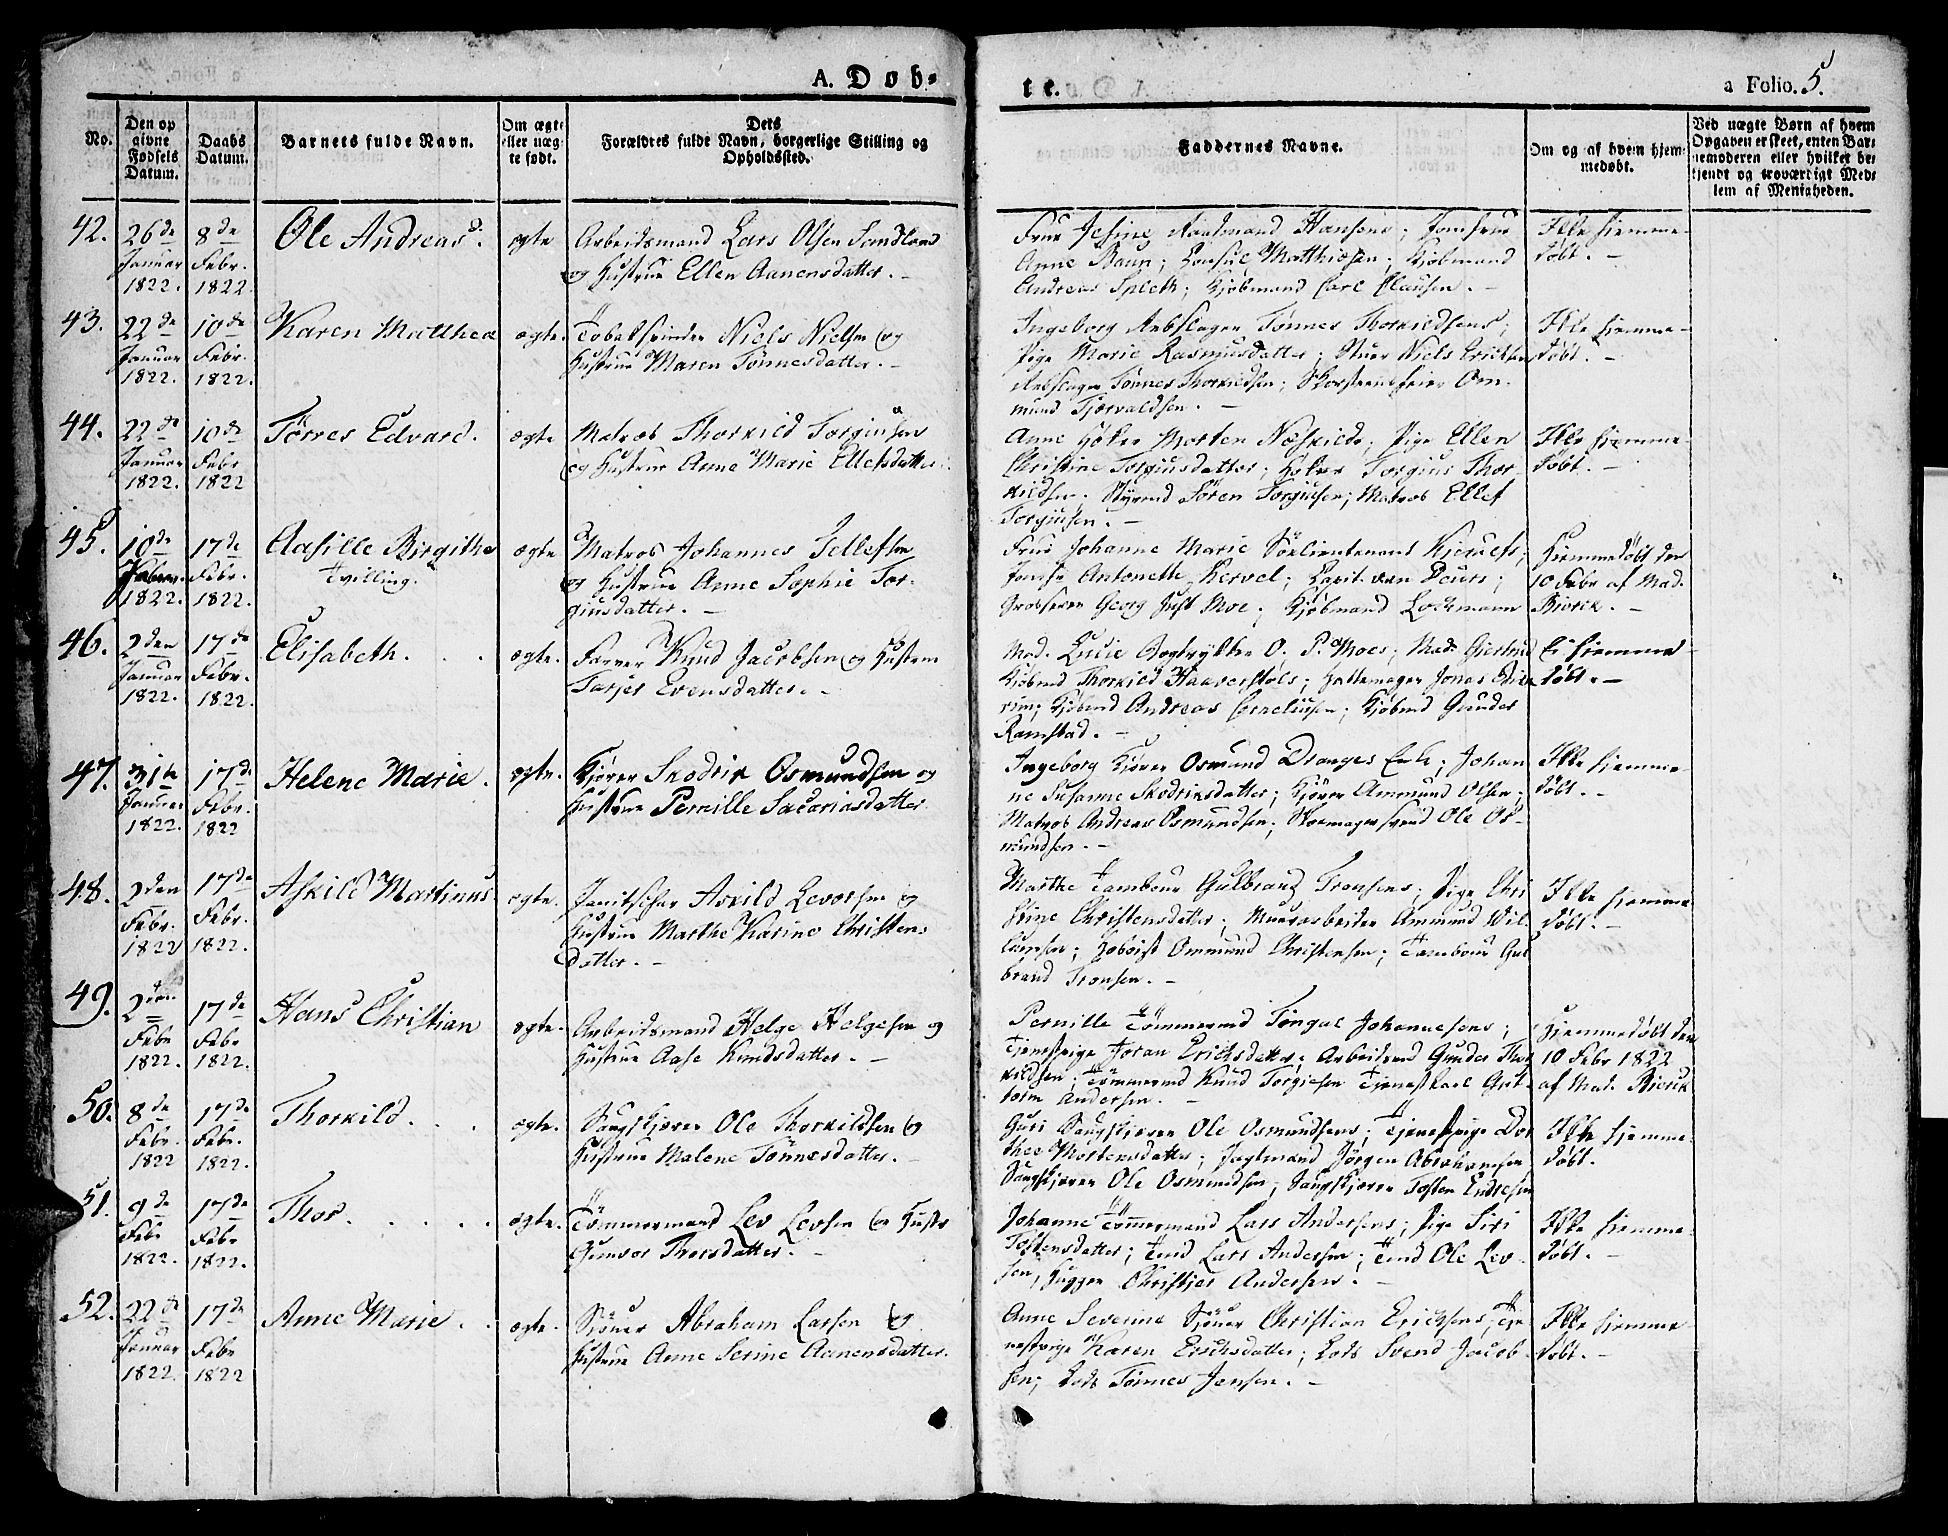 A. Døb-
te.
a Folio. 5.
No.
Den op
givne
Fødsels
Datum.
Daabs
Datum.
Barnets fulde Navn.
Om ægte
eller uæg-
te født.
Dets
Forældres fulde Navn, borgerlige Stilling og
Opholdssted.
Faddernes Navne.
Om og af hvem hjem-
medøbt.
Ved uægte Børn af hvem
Opgaven er skeet, enten Bar-
nemoderen eller hvilket be-
kjendt og troværdigt Med-
lem af Menigheden.
42.
26de
Januar
1822.
8de
Febr.
1822.
Ole Andreas.
ægte
Arbeidsmand Lars Olsen Sandland
og Hustrue Ellen Aanensdatter. -
Frue Jesine Raadmand Hansens; Jomfrue
Anne Baun; Consul Matthiesen; Kjøbmand
Andreas Spleth; Kjøbmand Carl Clausen. -
Ikke hiemme-
døbt. -
43.
22de
Januar
1822.
10de
Febr.
1822.
Karen Matthea
ægte.
Tobaksspinder Niels Nielsen og
Hustrue Maren Tønnesdatter. -
Ingeborg Rebslager Tønnes Thorkildsens;
Pige Marie Rasmusdatter; Stuer Niels Ericksen
Rebslager Tønnes Thorkildsen; Skorsteensfeier Om-
mund Tjervaldsen. -
Ikke hiemme-
døbt. -
44.
22de
Januar
1822.
10de
Febr
1822
Tørres Edvard.
ægte
Matros Thorkild Torgiusen
og Hustrue Anne Marie Ellefsdatter.
Anne Høker Morten Næskilds; Pige Ellen
Christine Torgiusdatter; Høker Torgius Thor-
kildsen; Styrmd Søren Torgiusen; Matros Ellef
Torgiusen. -
Ikke hiemme-
døbt. -
45.
10de
Febr.
1822.
17de
Febr.
1822.
Aasille Birgithe
Tvilling.
ægte
Matros Johannes Tellefsen
og Hustrue Anne Sophie Tor-
giusdatter. -
Frue Johanne Marie Søelieutenant
Jomfr Antonette Kervel; Capit. van Deurs;
Grosserer Georg Just Moe; Kjøbmand Lochmann
Hiemmedøbt den
10 Febr af Mad.
Biorck. -
46.
2den
Januar
1822.
17de
Febr.
1822.
Elisabeth.
ægte.
Farver Knud Jacobsen og Hustrue
Tarjer Evensdatter. -
Mad. Lucie Bogtrykker O. P. Moes; Mad. Giertrud
Kjøbmd Thorkild Haaverstols; Hattemager Jonas
Kjøbmd Andreas Corneliusen; Kjøbmd Gunder
Ramstad. -
Ei hiemme-
døbt. -
47.
31te
Januar
1822.
17de
Febr.
1822
Helene Marie.
ægte.
Kjører Skodrik Osmundsen og
Hustrue Pernille Sacariasdatter.
Ingeborg Kjører Osmund Dranges Enke; Johan-
ne Susanne Skodriksdatter; Kjører Ammund Olsen;
Matros Andreas Osmundsen; Skomagersvend Ole Os-
mundsen. -
Ikke hiemme-
døbt. -
48.
2den
Febr.
1822
17de
Febr.
1822.
Askild Martinus
ægte.
Janitschar Askild Levorsen og
Hustrue Marthe Karine Christens
datter. -
Marthe Tambour Gulbrand Tronsens; Pige Chri
stine Christensdatter; Muurarbeider Ammund Wil-
lumsen; Hoboist Ommund Christensen; Tambour Gul
brand Tronsen. -
Ikke hiemme
døbt. -
49.
2den
Febr
1822.
17de
Febr
1822.
Hans Christian
ægte.
Arbeidsmand Helge Helgesen og
Hustrue Aase Knudsdatter. -
Pernille Tømmermd Tongal Johannesens;
Tjenestpige Joran Ericksdatter; Arbeidsmd Gunder Thor
kildsen; Tømmermd Knud Torgiesen Tjenestkarl Gut-
torm Andersen. -
Hiemmedøbt den
10 Febr 1822
af Mad. Biorck
50.
8de
Febr.
1822
17de
Febr.
1822.
Thorkild.
ægte.
Saugskjærer Ole Thorkildsen og
Hustrue Malene Tønnesdatter. -
Guri Saugskjærer Ole Osmundsens; Tjenestpige Dor
thee Mortensdatter; Jagtmand Jørgen Abrahamsen
Saugskjærer Ole Osmundsen; Saugskjærer Tosten Endresen
Ikke hiemme-
døbt.
51.
9de
Febr
1822.
17de
Febr
1822.
Thor.
ægte.
Tømmermand Lev Levsen og Hustr
Gunvor Thorsdatter. -
Johanne Tømmermand Lars Andersens; Pige Siri
Tostensdatter; Tmd Lars Andersen; Tmd Ole Lev-
sen, Hugger Christjer Andersen. -
Ikke hiemme-
døbt. -
52.
22de
Januar
1822.
17de
Febr
1822
Anne Marie.
ægte.
Sjouer Abraham Larsen og
Hustrue Anne Serine Aanensdatter.
Anne Severine Sjouer Christian Ericksens; Tje-
nestpige Karen Ericksdatter; Lods Svend Jacob-
sen; Lods Tønnes Jensen. -
Ikke hiemme
døbt. -